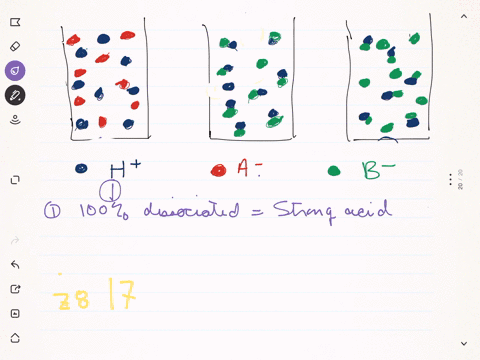 H+ A- B-
① 100% dissociated = Strong acid
z8 17
20 / 20